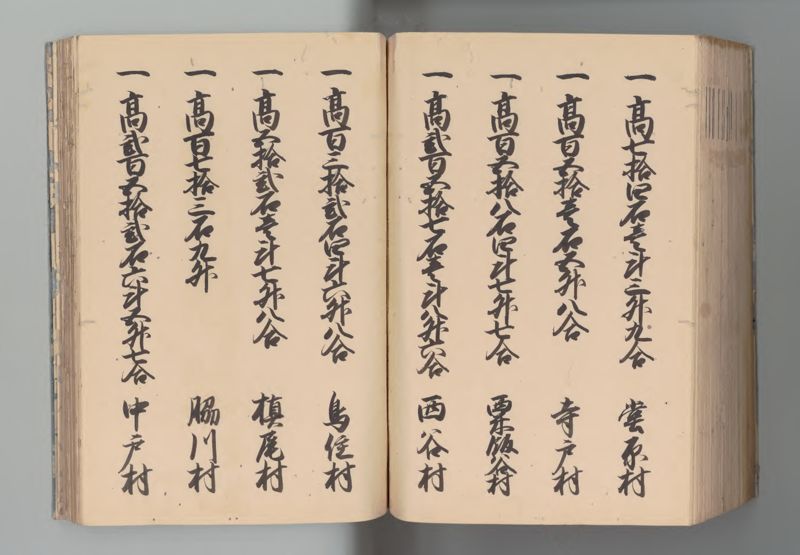 一 高七拾四石壱斗三升九合 當原村
一 高百五拾壱石五升八合 寺戸村
一 高百五拾八石四斗七升七合 粟飯谷村
一 高弐百五拾七石壱斗八升六合 西谷村
一 高百三拾弐石四斗六升八合 鳥住村
一 高五拾弐石壱斗七升八合 槙尾村
一 高百七拾三石九升 脇川村
一 高弐百五拾弐石六斗五升七合 中戸村